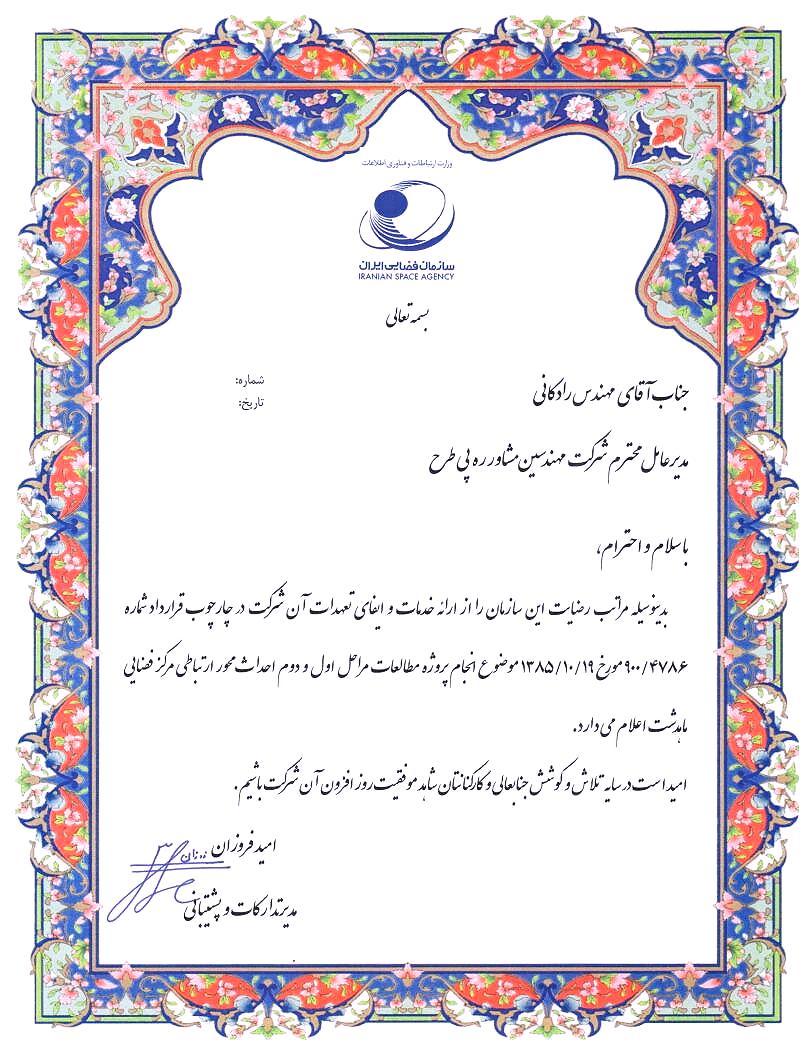 وزارت ارتباطات و فناوری اطلاعات
سازمان فضایی ایران
IRANIAN SPACE AGENCY
بسمه تعالی
شماره:
تاریخ:
جناب آقای مهندس رادکانی
مدیرعامل محترم شرکت مهندسین مشاور ره پی طرح
با سلام و احترام،
بدینوسیله مراتب رضایت این سازمان را از ارائه خدمات و ایفای تعهدات آن شرکت در چارچوب قرارداد شماره
۹۰۰/۴۷۸۶ مورخ ۱۳۸۵/۱۰/۱۹ موضوع انجام پروژه مطالعات مراحل اول و دوم احداث محور ارتباطی مرکز فضایی
ماهدشت اعلام می دارد.
امید است در سایه تلاش و کوشش جنابعالی و کارکنانتان شاهد موفقیت روز افزون آن شرکت باشیم.
امید فروزان
مدیر تدارکات و پشتیبانی